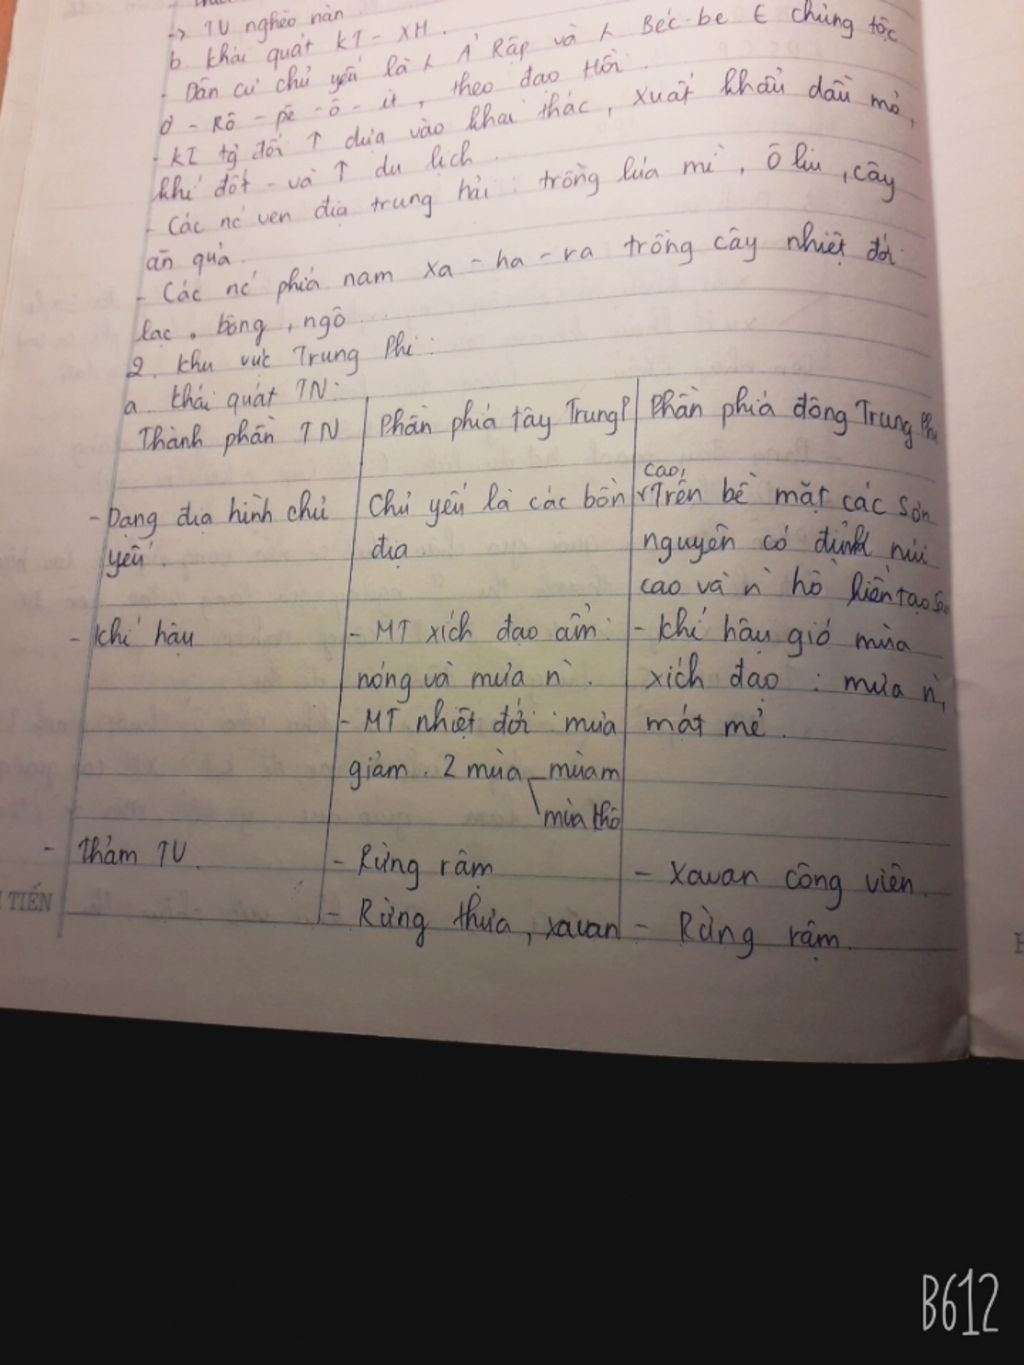 -> TV nghèo nàn
b. Khái quát KT - XH.
- Dân cư chủ yếu là λ Ả Rập và λ Béc-be ∈ chủng tộc
Ơ - Rô - pê - ô - it, theo đạo Hồi.
- KT tg đối ↑ dựa vào khai thác, xuất khẩu dầu mỏ,
khí đốt - và ↑ du lịch.
- Các nc ven địa trung hải : trồng lúa mì, ô liu, cây
ăn quả.
- Các nc phía nam xa - ha - ra trồng cây nhiệt đới:
lạc, bông, ngô
2. Khu vực Trung Phi:
a. Khái quát TN:
Thành phần TN | Phần phía tây Trung P | Phần phía đông Trung Phi
cao,
- Dạng địa hình chủ | Chủ yếu là các bồn | Trên bề mặt các sơn
yếu. | địa | nguyên có đỉnh núi
cao và n` hồ kiến tạo sâu
- Khí hậu | - MT xích đạo ẩm: | - Khí hậu gió mùa
nóng và mưa n`. | xích đạo : mưa n`,
- MT nhiệt đới : mưa | mát mẻ.
giảm. 2 mùa mùa m
mùa khô
- Thảm TV. | - Rừng rậm | - Xavan công viên.
TIẾN | - Rừng thưa, xavan | - Rừng rậm.
B612